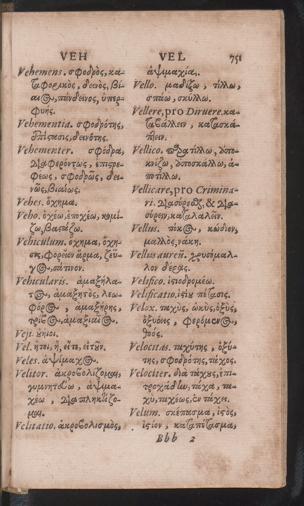 VEH VEL 751
Vehemens. σφοδρὸς, κα-
ταφορικὸς, δεινὸς, βί-
αιος, πάνδεινος, ὑπερ-
φυής.
Vehementia. σφοδρότης,
ἐπίτασις, δεινότης.
Vehementer. σφόδρα,
διαφερόντως, ἐπιστρε-
φέως, σφοδρῶς, δει-
νῶς, βιαίως.
Vehes. ὄχημα.
Veho. ὀχέω, ἐποχέω, κομί-
ζω, βαστάζω.
Vehiculum. ὄχημα, ὄχη-
σις, φορεῖον ἅρμα, ζεῦ-
γος,
Vehicularis. ἁμαξήλα-
τος, ἁμαξητὸς, λεω-
φόρος, ἁμαξήρης,
ἁμαξιαῖος.
Veij.
Vel. ἤτοι, ἢ, εἴτε, εἴτ᾽οὖν.
Veles. ἀψίμαχος.
Velitor. ἀκροβολίζομαι,
γυμνητεύω, ἀψιμα-
χέω, διαπληκτίζο-
μαι.
Velitatio. ἀκροβολισμὸς,
ἀψιμαχία.
Vello. μαδίζω, τίλλω,
σπάω, σκύλλω.
Vellere, pro Diruere. κα-
ταβάλλειν, κατασκά-
πτειν.
Vellico. παρατίλλω, ὑπο-
κνίζω, ὑποσκάλλω, ἀ-
ποτίλλω.
Vellicare, pro Crimina-
ri. διασύρειν, καταλαλεῖν.
Vellus. πόκος, κώδιον,
μαλλὸς, νάκη.
Vellus aureũ. χρυσόμαλ-
λον δέρας.
Velifico. ἱστιοδρομέω.
Velificatio. ἱστίων πέτασις.
Velox. ταχὺς, ὠκὺς, ὀξὺς,
ὀξύνους, φερόμενος,
θοός.
Velocitas. ταχύτης, ὀξύ-
της, σφοδρότης, τάχος.
Velociter. διὰ τάχους, ἐπι-
τροχάδην, τάχα, τα-
χὺ, ταχέως, ἐν τάχει.
Velum. σκέπασμα, ἱστὸς,
ἱστίον, καταπέτασμα,
Bbb 2